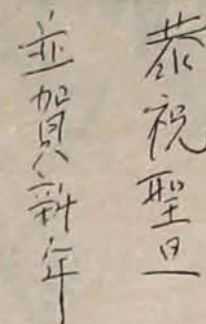 恭祝聖旦
並賀新年